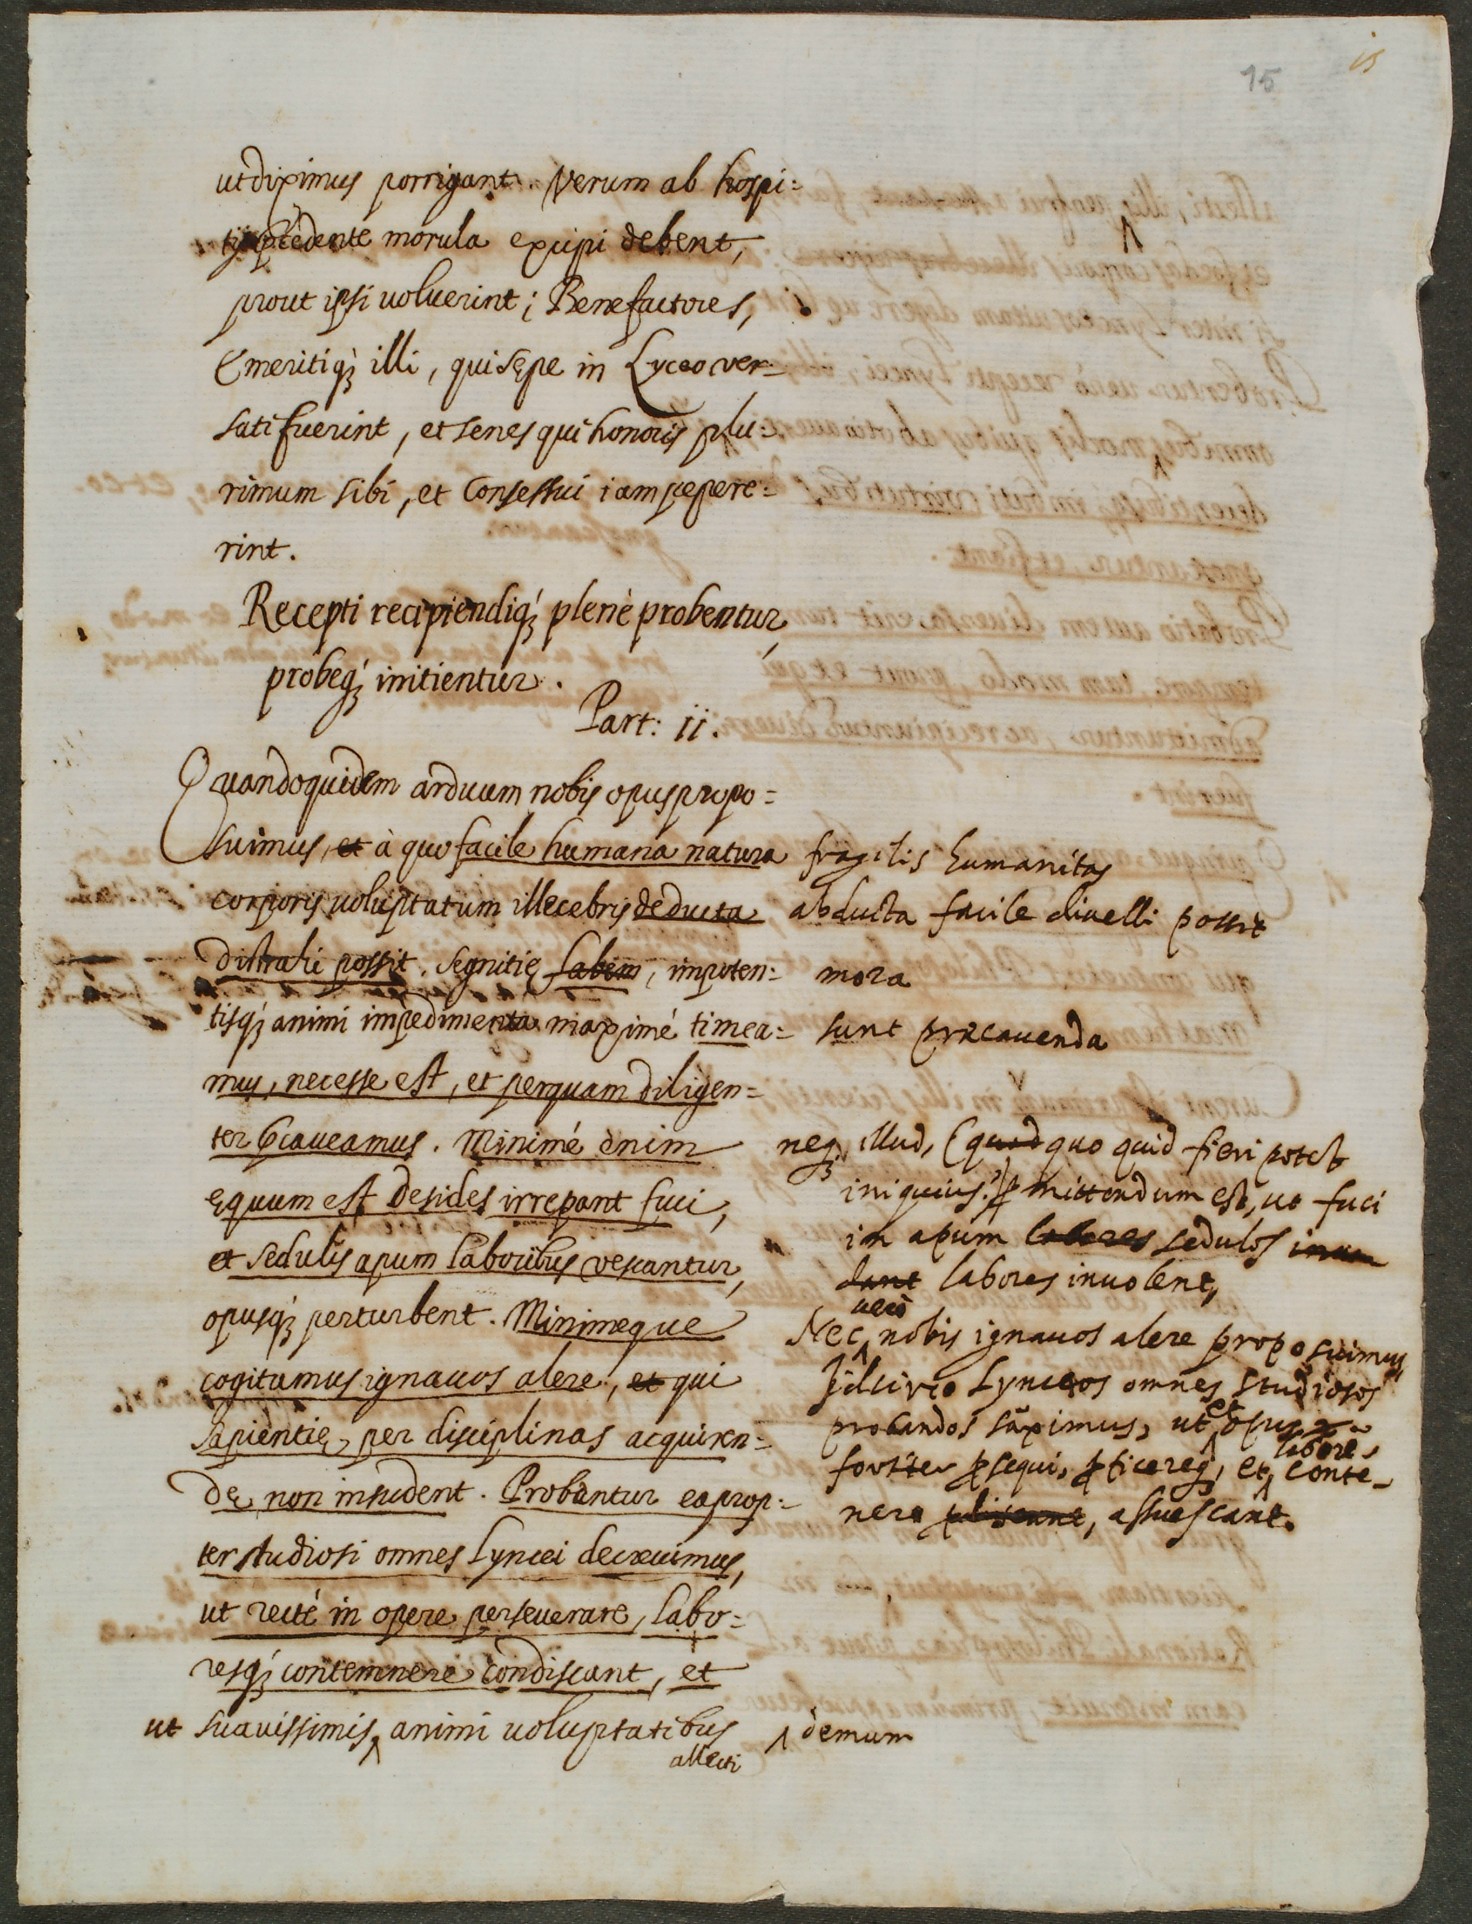 15
15
ut diximus porrigant. Verum ab hospi=
morula excipi debent,
prout ipsi uoluerint; Benefactores,
Emeritiq; illi, qui sępe in Lyceo ver=
sati fuerint, et senes qui honoris plu=
rimum sibi, et Consessui iam pepere=
rint.
Recepti recipiendiq; plenè probentur,
probeq; initientur.
Part: ii.
Quandoquidem arduum nobis opus propo=
suimus, et à quo facile humana natura
corporis uoluptatum illecebris deducta
distrahi possit, segnitię labem, impoten=
tisq; animi impedimenta maximé timea=
mus, necesse est, et perquam diligen=
ter p̄caueamus. Minimé enim
ęquum est desides irrepant fuci,
et sedulis apum laboribus vescantur,
opusq; perturbent. Minimeque
cogitamus ignauos alere, et qui
sapientię, per disciplinas acquiren=
dę non insudent. Probentur eaprop=
ter studiosi omnes Lyncei decreuimus,
ut recté in opere perseuerare, labo=
resq; contemnere condiscant, et
ut suauissimis ‸ animi uoluptatibus
allecti
fragilis humanitas
abducta facile diuelli possit
mora
sunt præcauenda
neq; illud, (quod quo quid fieri potest
iniquius?) p̱mittendum est, ut fuci
in apum labores sedulos inua
dant labores inuolent,
uero
Nec ‸ nobis ignauos alere proposuimus
Idcirco Lynceos omnes studiosos
probandos sāximus, ut ‸ et opus
labores
fortiter p̱sequi, p̱ficereq; et ‸ conte-
nere, assuescant.
‸ demum